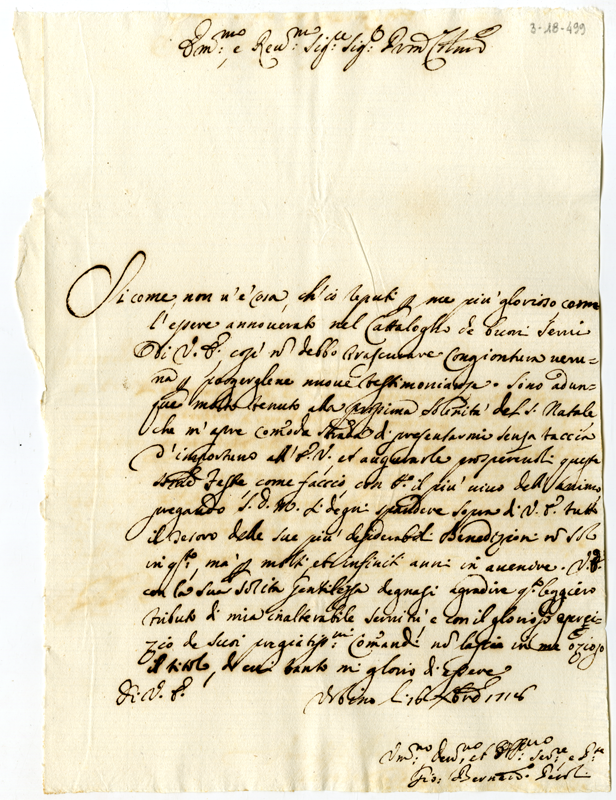 3-18-499
e Rev.mo Sig.re Sig.r
Si come non v'è cosa, ch'io reputi p me più glorioso come
l'essere annoverato nel Cattalogho de buoni Servi
di V. E. così nō debbo trascurare Congiontura veru-
na p porgerglene nuove testimonianze. Sono adun-
que molto tenuto alla prossima solēnità del S. Natale
che m'apre comoda strada di presentarmi senza taccia
d'importuno all'E. V. et augurarle prosperevoli queste
Feste come faccio con il più vivo dell'animo
pregando S. D. M. si degni spandere sopra di V. E. tutto
il tesoro delle sue più desiderabili Benedizioni nō solo
in q.to, ma p molti et infiniti anni in avenire. V. E.
con la sua solita gentilezza degnasi agradire q.to leggiero
tributo di mia inalterabile servitù e con il glorioso eserci-
zio de suoi pregiatiss.mi Comandi nō lascia in me ozioso
il titolo, di cui tanto mi glorio di essere
Di V. E.
Urbino li 16 Xbre 1716
Um.mo Dev.mo et Serv.re
Gio: Bernard.o